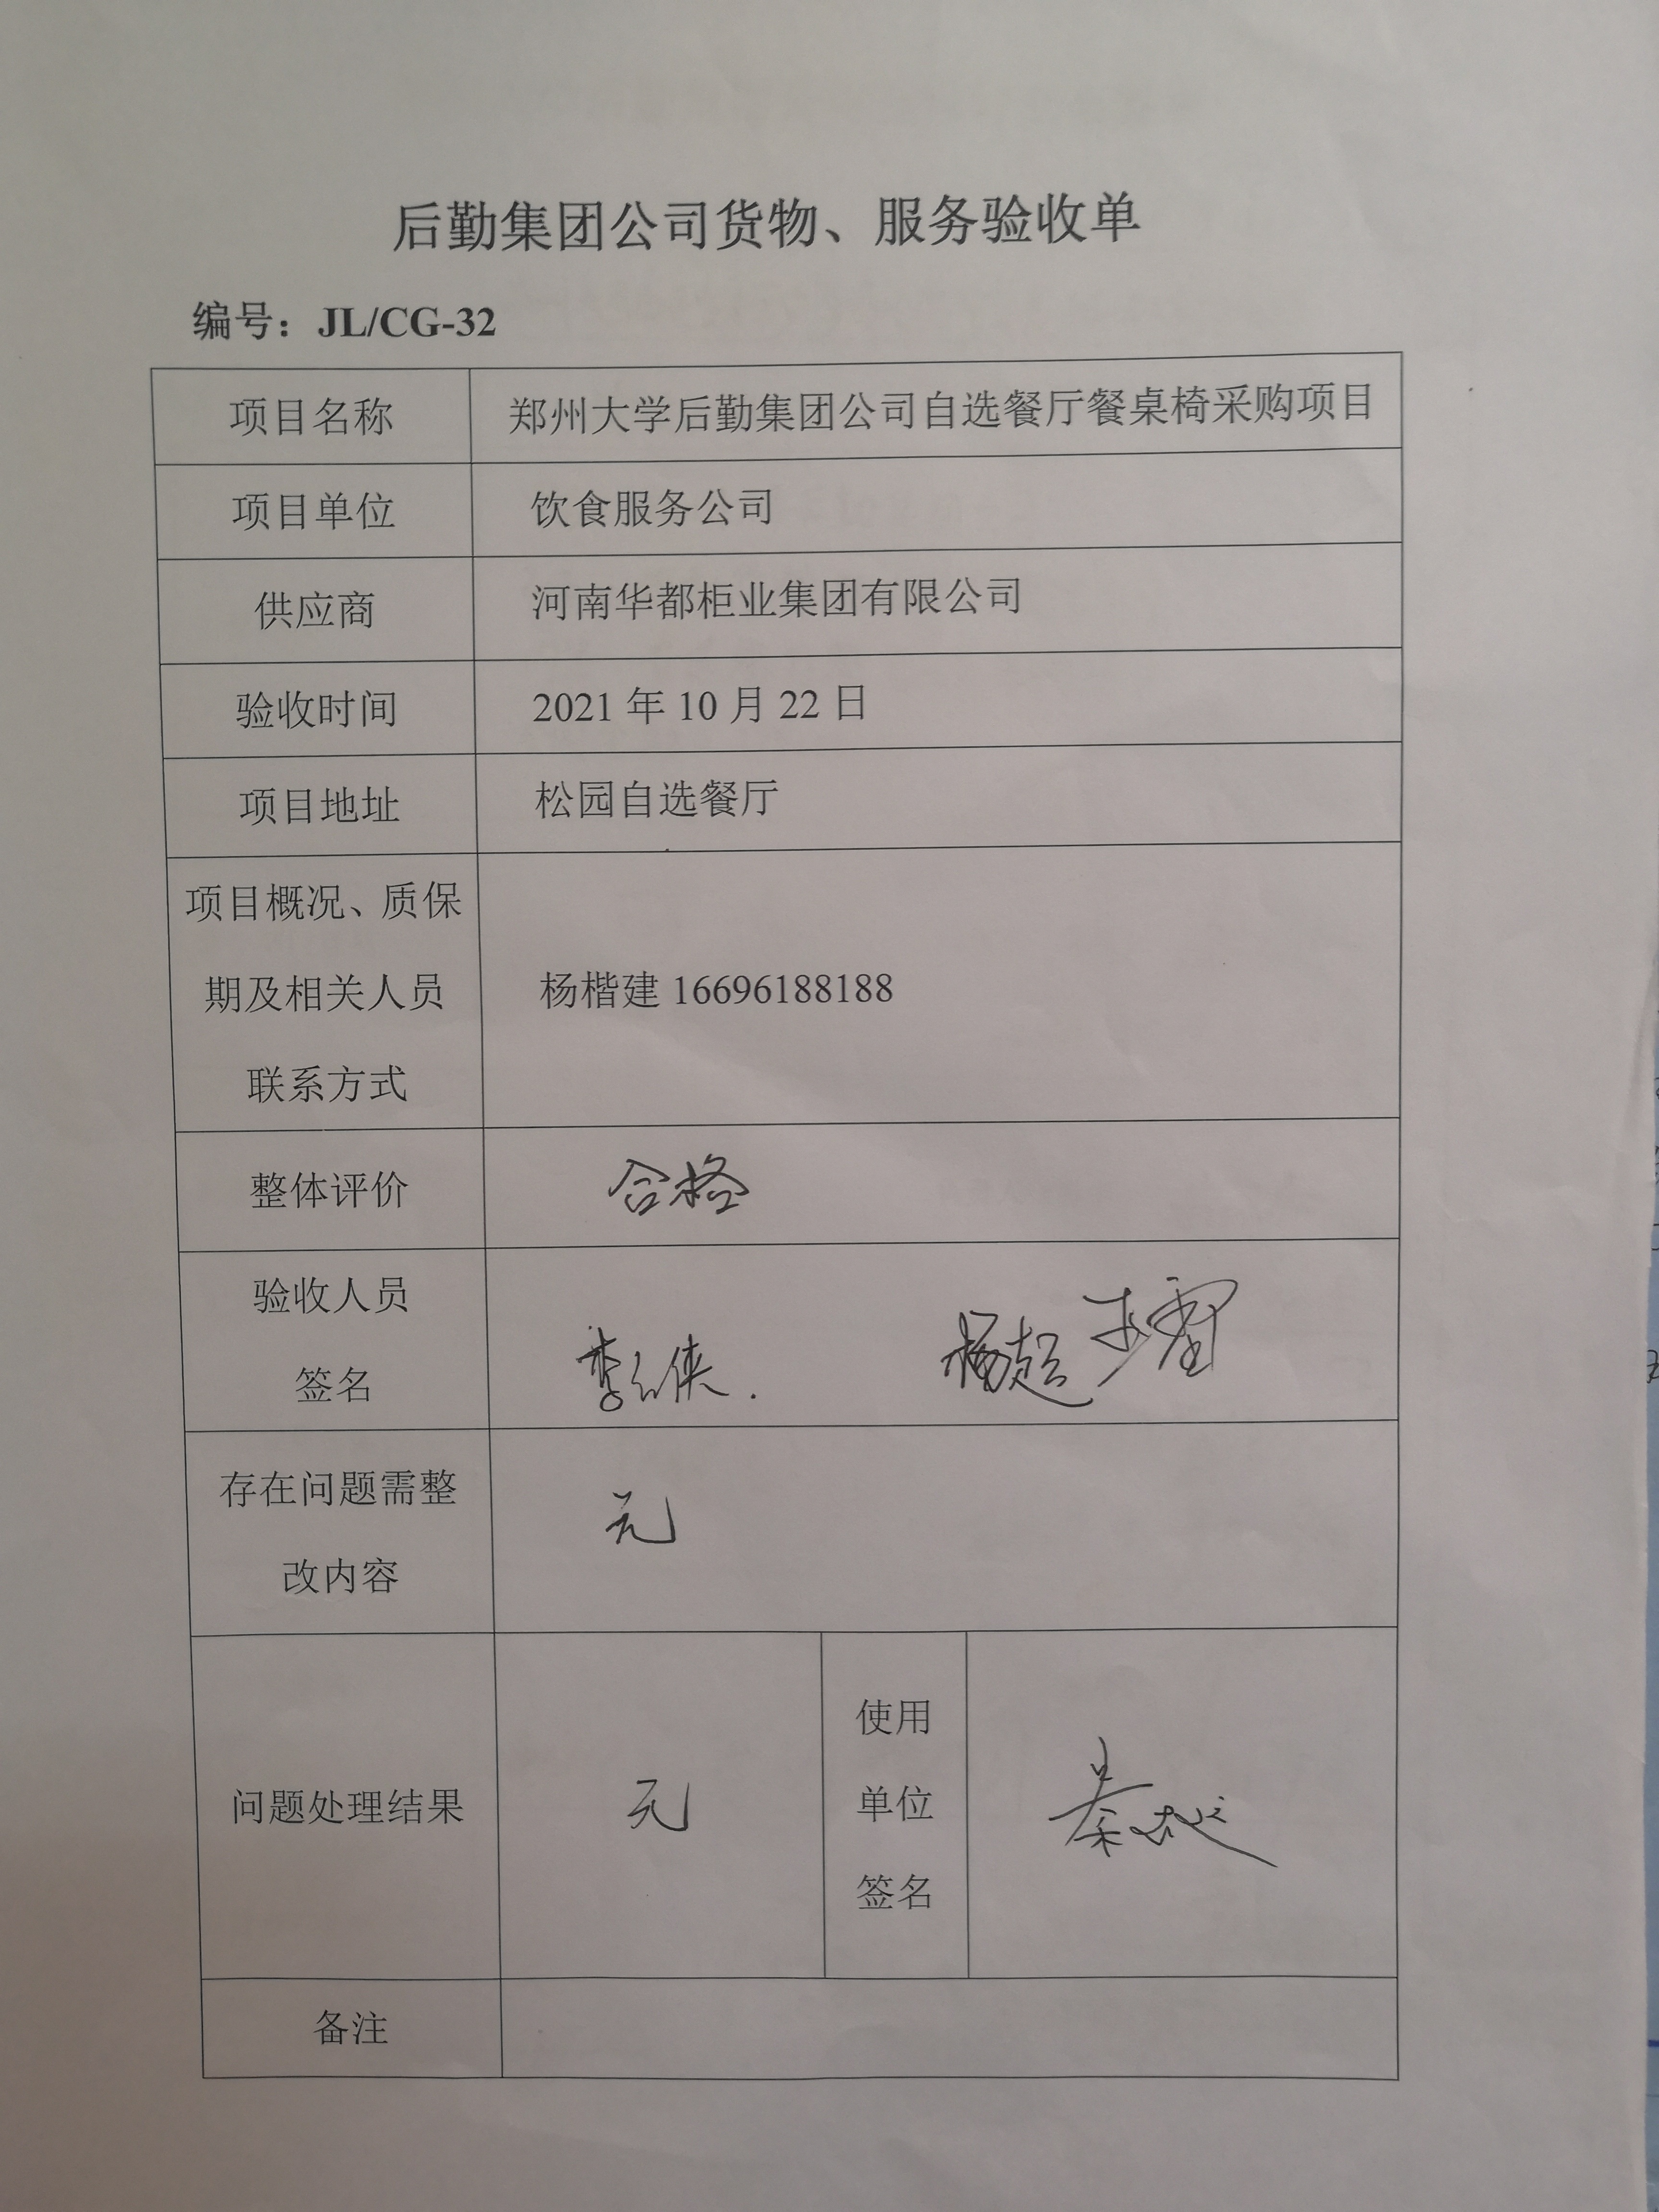 后勤集团公司货物、服务验收单
编号：JL/CG-32
项目名称 郑州大学后勤集团公司自选餐厅餐桌椅采购项目
项目单位 饮食服务公司
供应商 河南华都柜业集团有限公司
验收时间 2021年10月22日
项目地址 松园自选餐厅
项目概况、质保
期及相关人员
联系方式
杨楷建 16696188188
整体评价 合格
验收人员
签名
杨超
存在问题需整
改内容
无
问题处理结果 无
使用
单位
签名
备注